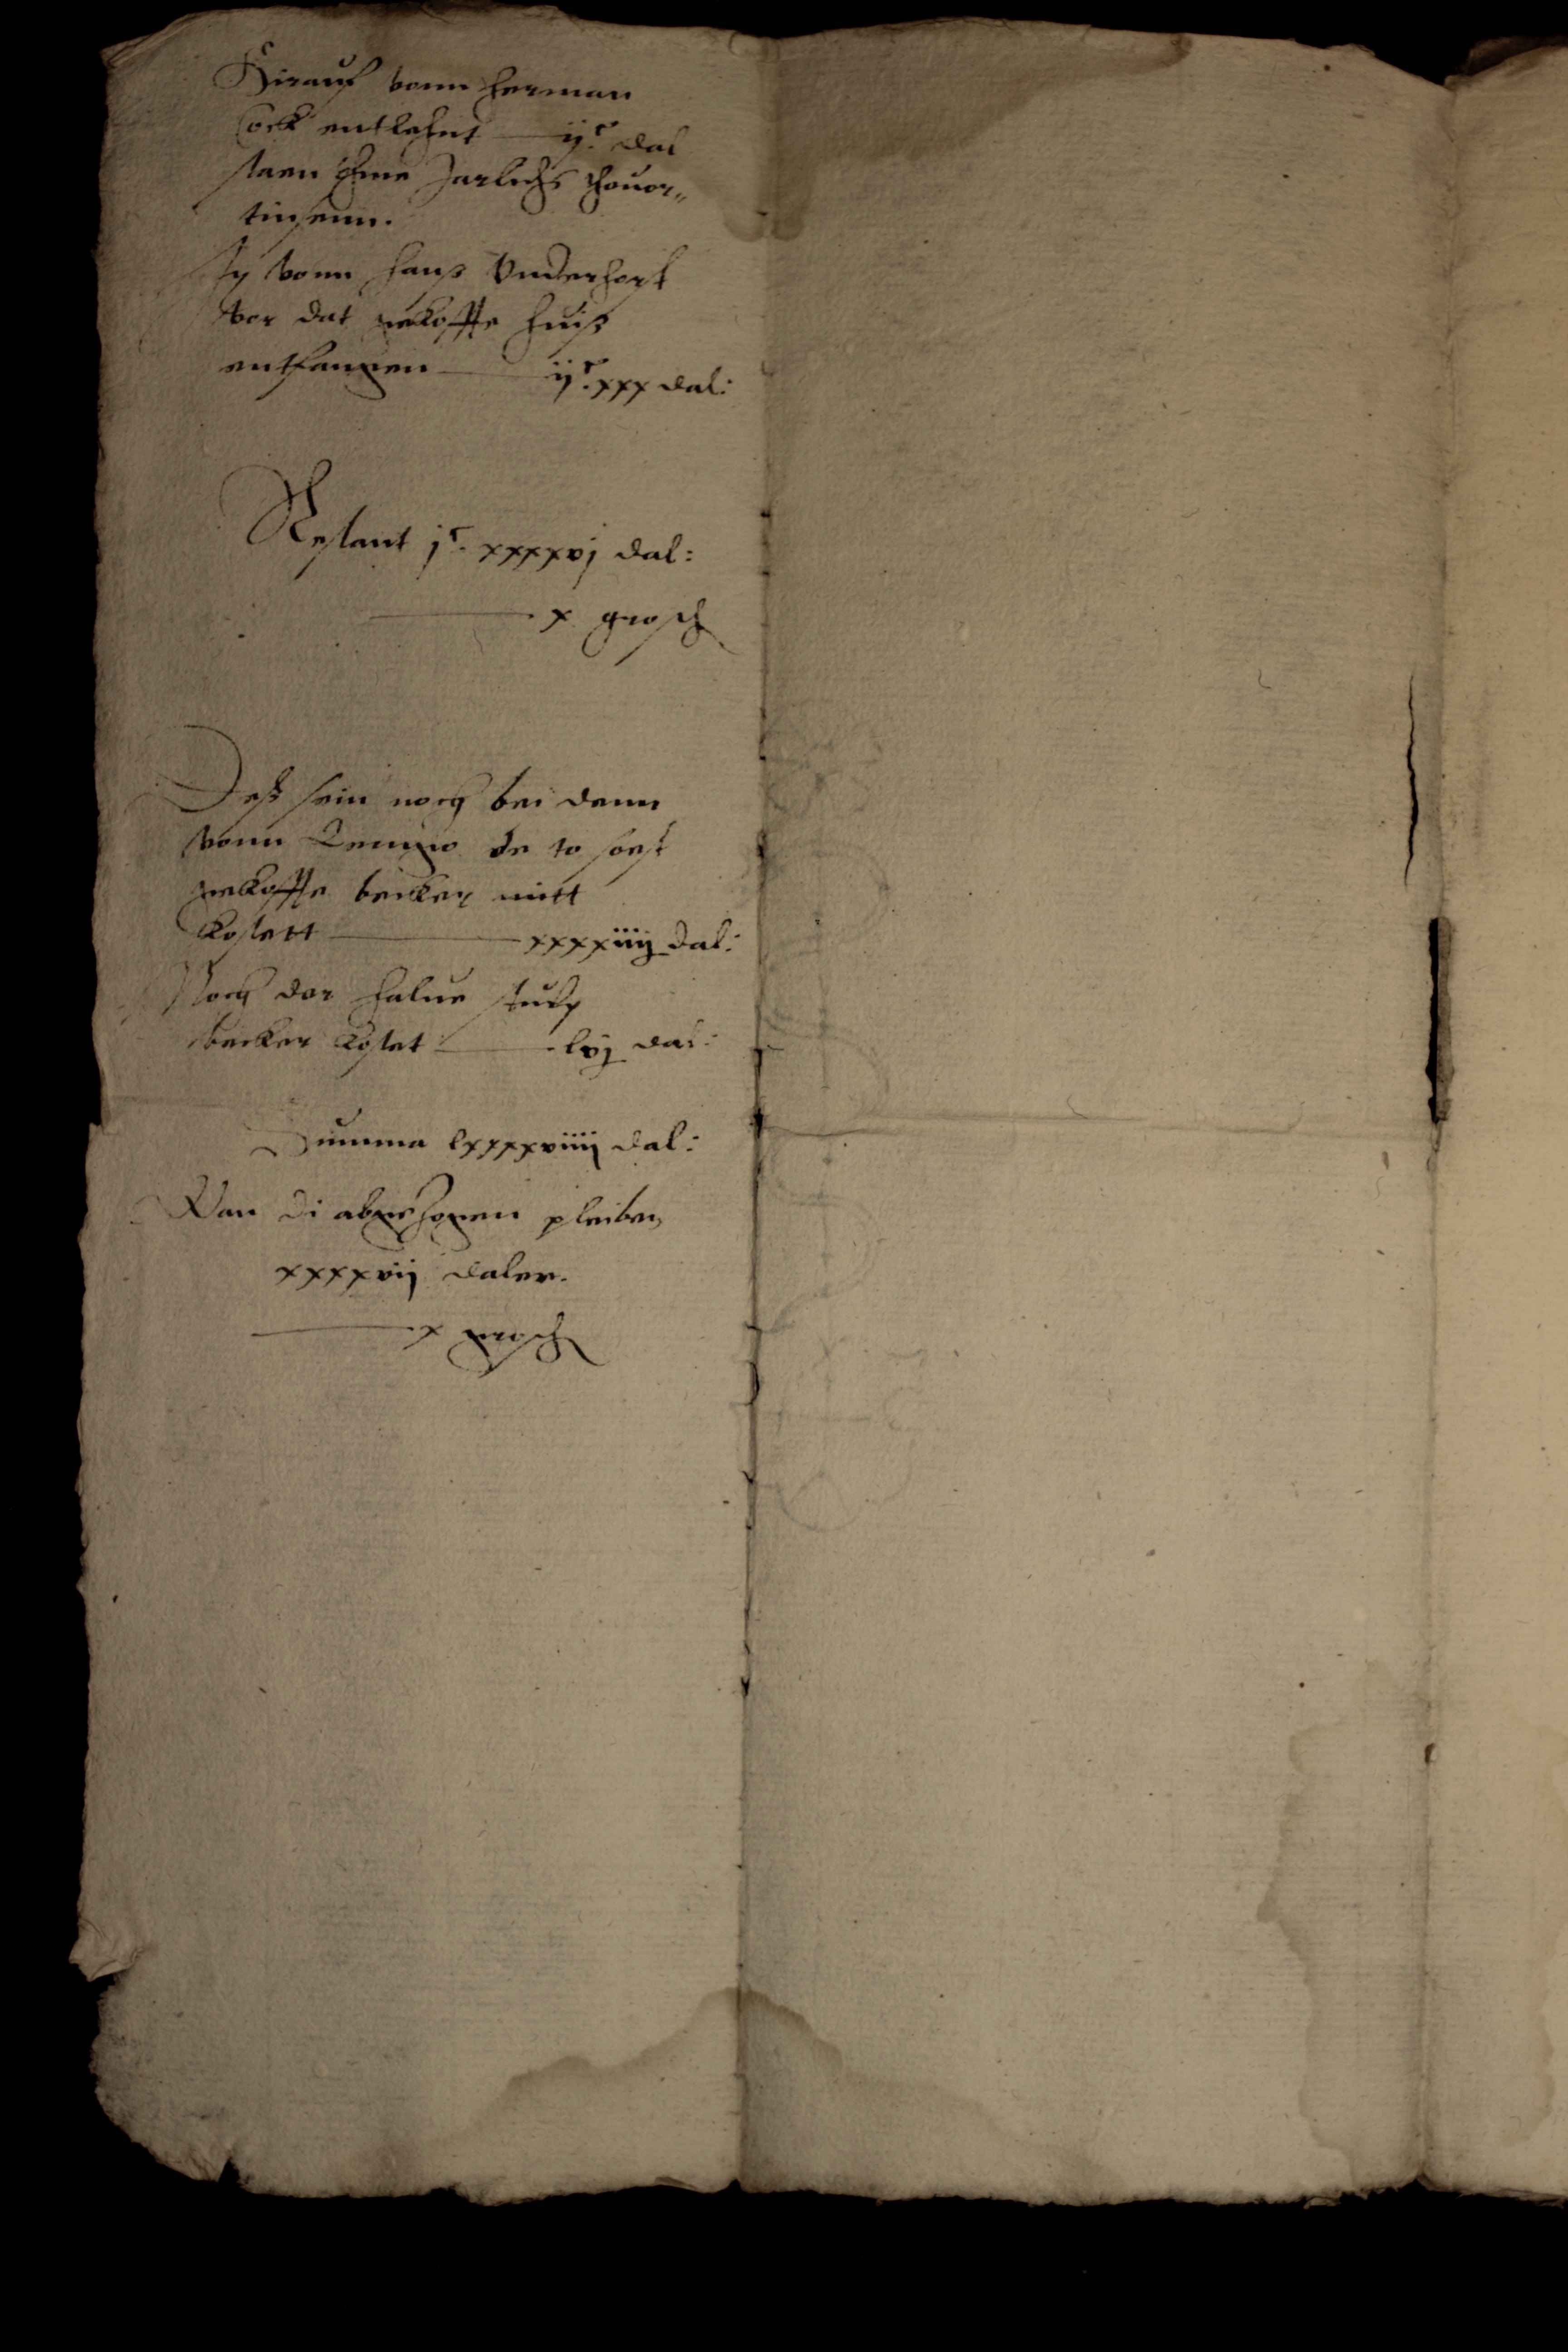 Hirauf vonn Herman
Cock entlehnt — ijc. dal
staen ihme Jarlichs thouor„
tinsenn.
Jtz vonn Hanß Vnderhorst
vor dat gekoffte huiß
entfangen — ijc. xxx dal:
Restant jc. xxxxvj dal:
— x grosch
Deß sein noch bei denn
vonn Remigo de to soest
gekoffte becker mitt
kostett — xxxxiiij dal:
Noch dor halue stutz
becker kostet — lvj dal:
Summa lxxxxviiij dal:
Wan di abgezogen pleiben
xxxxvij daler.
— x grosch